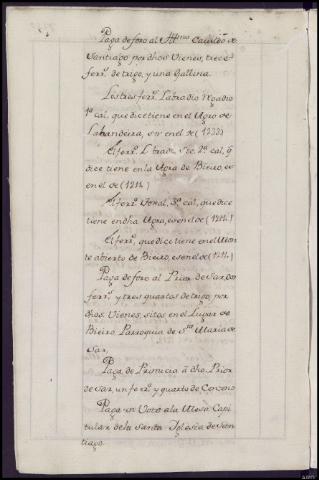 Paga de foro al Ittmo Cavildo de
Santiago por dhos Vienes, trece
ferrs. de trigo, y una Gallina.
Los tres ferrs. Labradio regadio
1ª cal. que dice tiene en el Agro de
Labandeira, es en el de (1233)
El ferr. Labrad. Sec. 2ª cal. q
dice tiene en la Agra de Bieiro, es
en el de (1214)
El ferr. 3ª cal. que dice
tiene en dha Agra, es en el de (1214)
El ferr. que dice tiene en el Mon
te abierto de Bieiro, es en el de (1214)
Paga de foro al Prior de Sar, dos
ferrs. y tres quartos de trigo, por
dhos. Vienes, sitos en el Lugar de
Bieiro Parroquia de Sta. Maria de
Sar,
Paga de Primicia a dho. Prior
de Sar, un ferr. y quarto de Centeno
Paga un Voto a la Mesa Capi
tular de la Santa Iglesia de San
tiago.